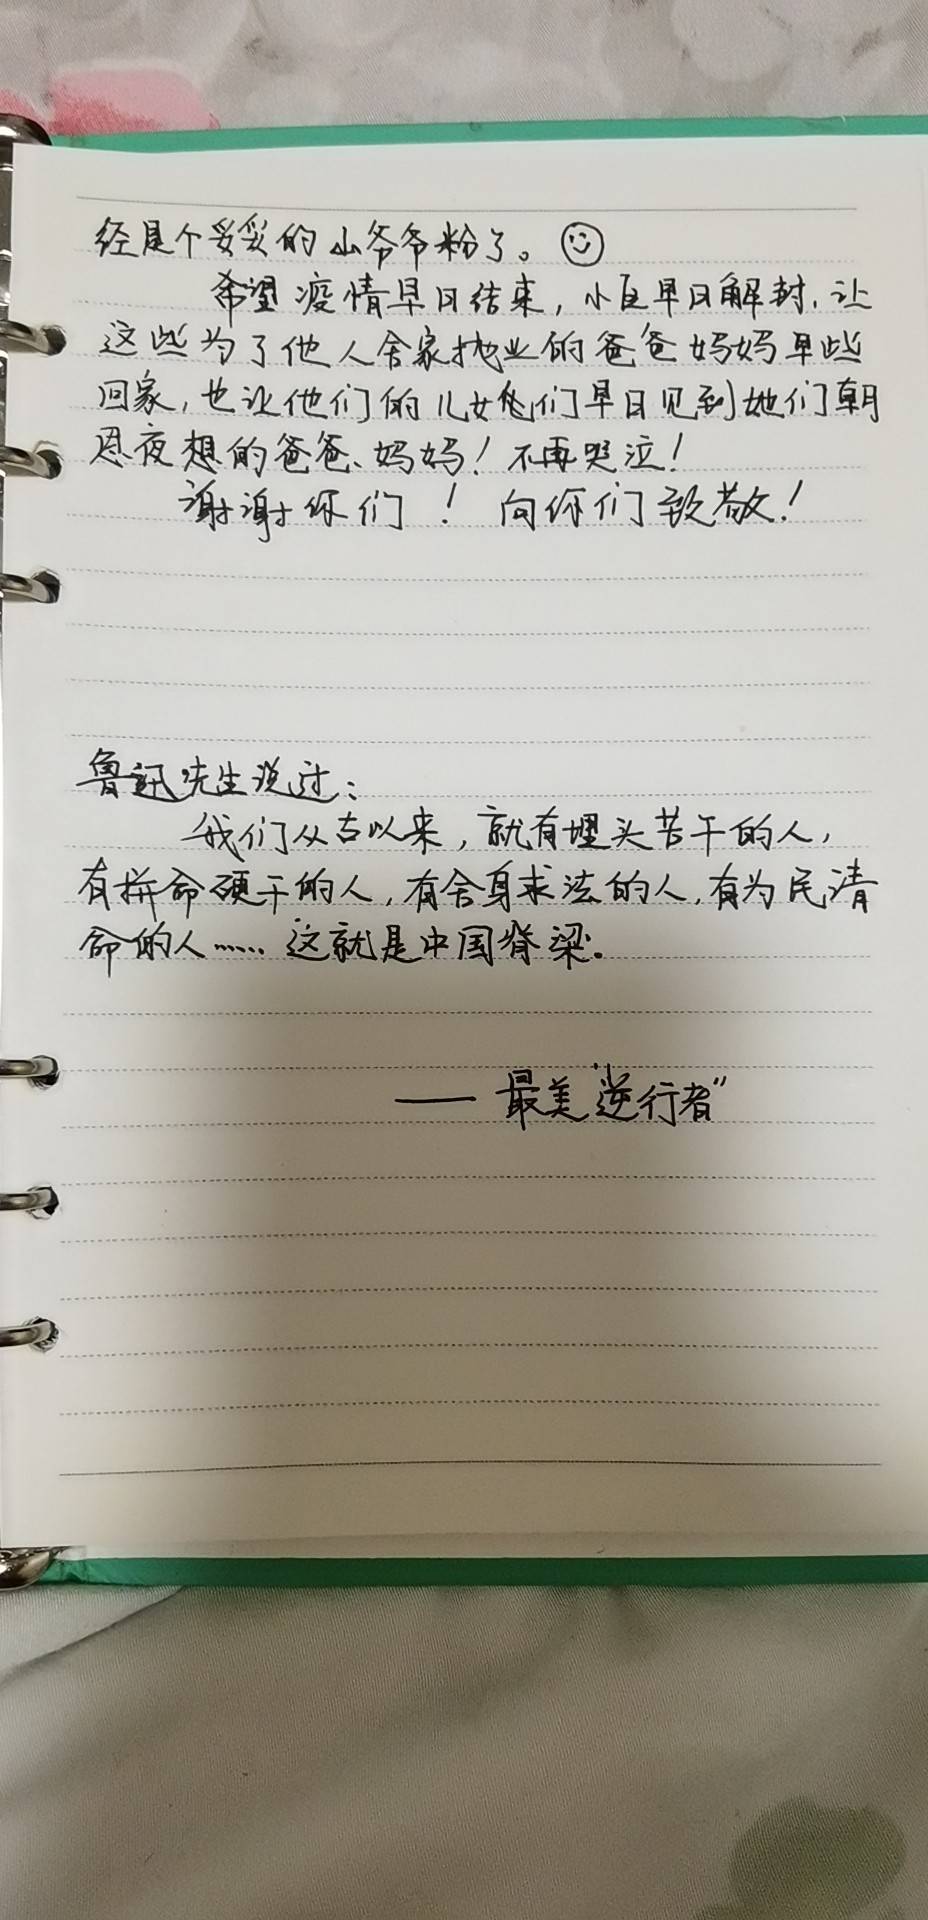 经是个妥妥的山爷爷粉了。
希望疫情早日结束，小区早日解封，让
这些为了他人舍家抛业的爸爸妈妈早些
回家，也让他们的儿女他们早日见到她们朝
思夜想的爸爸、妈妈！不再哭泣！
谢谢你们！向你们致敬！
鲁迅先生说过：
我们从古以来，就有埋头苦干的人，
有拼命硬干的人，有舍身求法的人，有为民请
命的人……这就是中国脊梁。
——最美“逆行者”